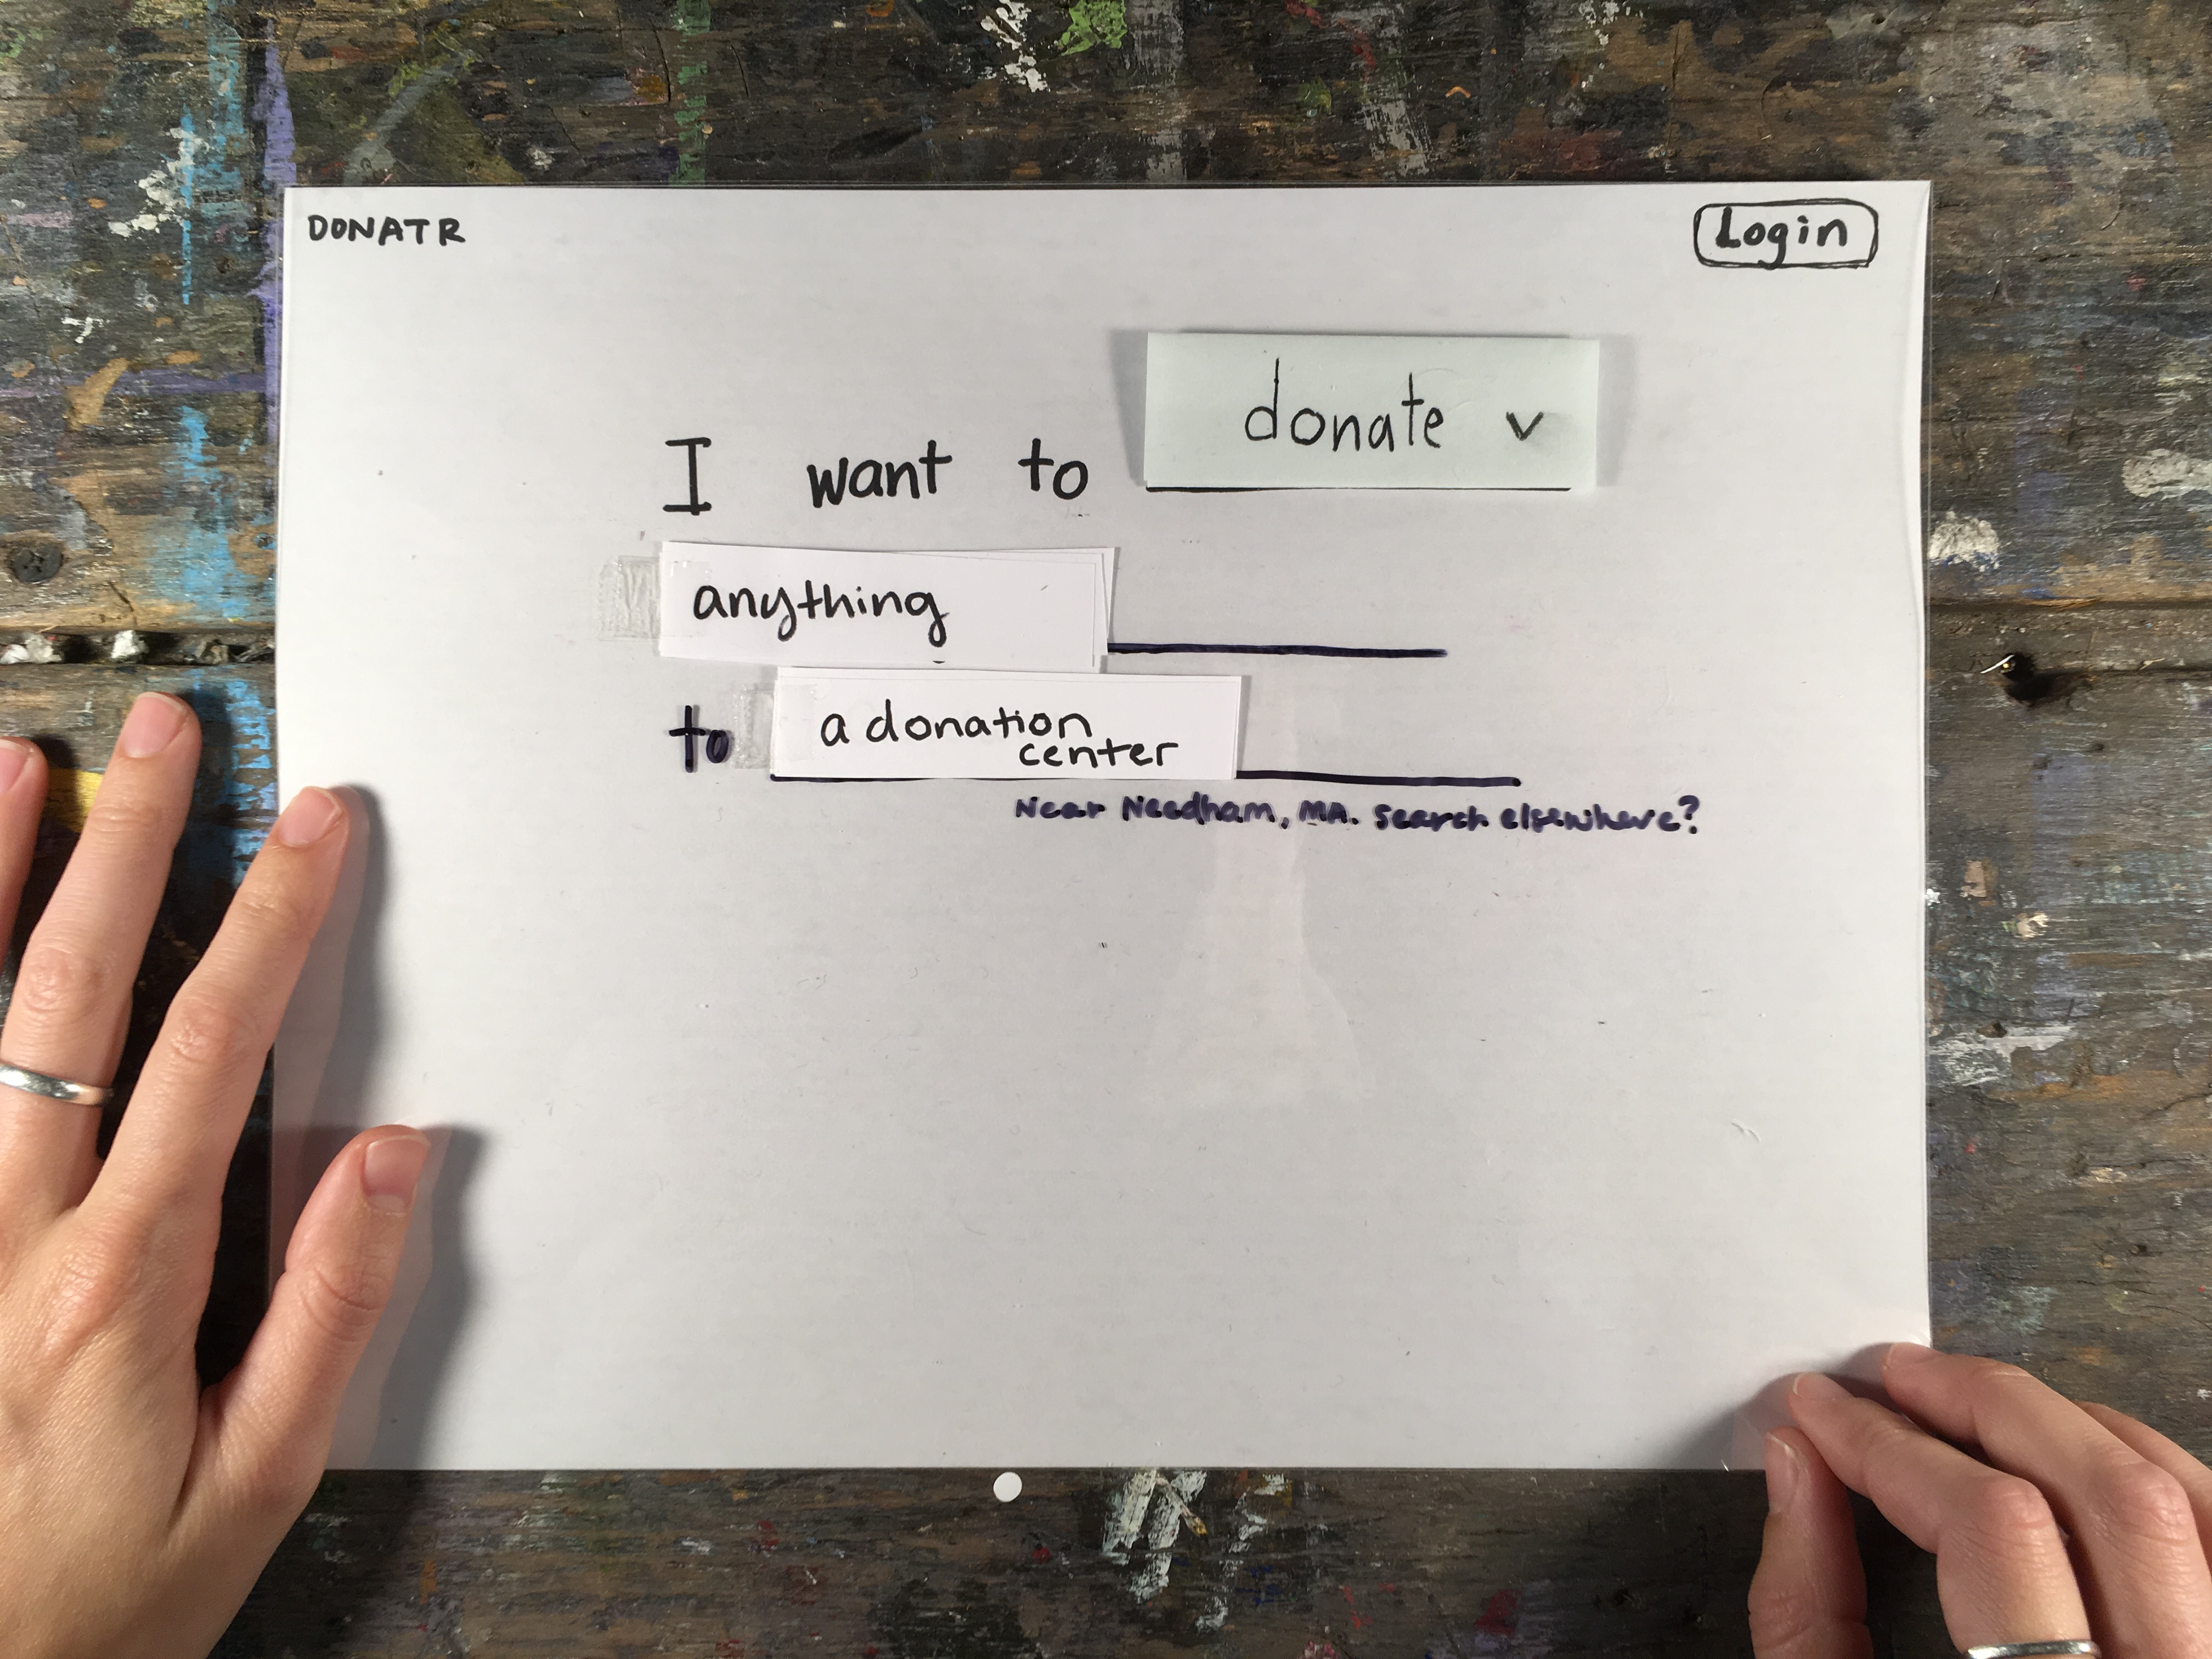 DONATR
Login
I want to donate v
anything
to a donation
center
Near Needham, MA. Search elsewhere?